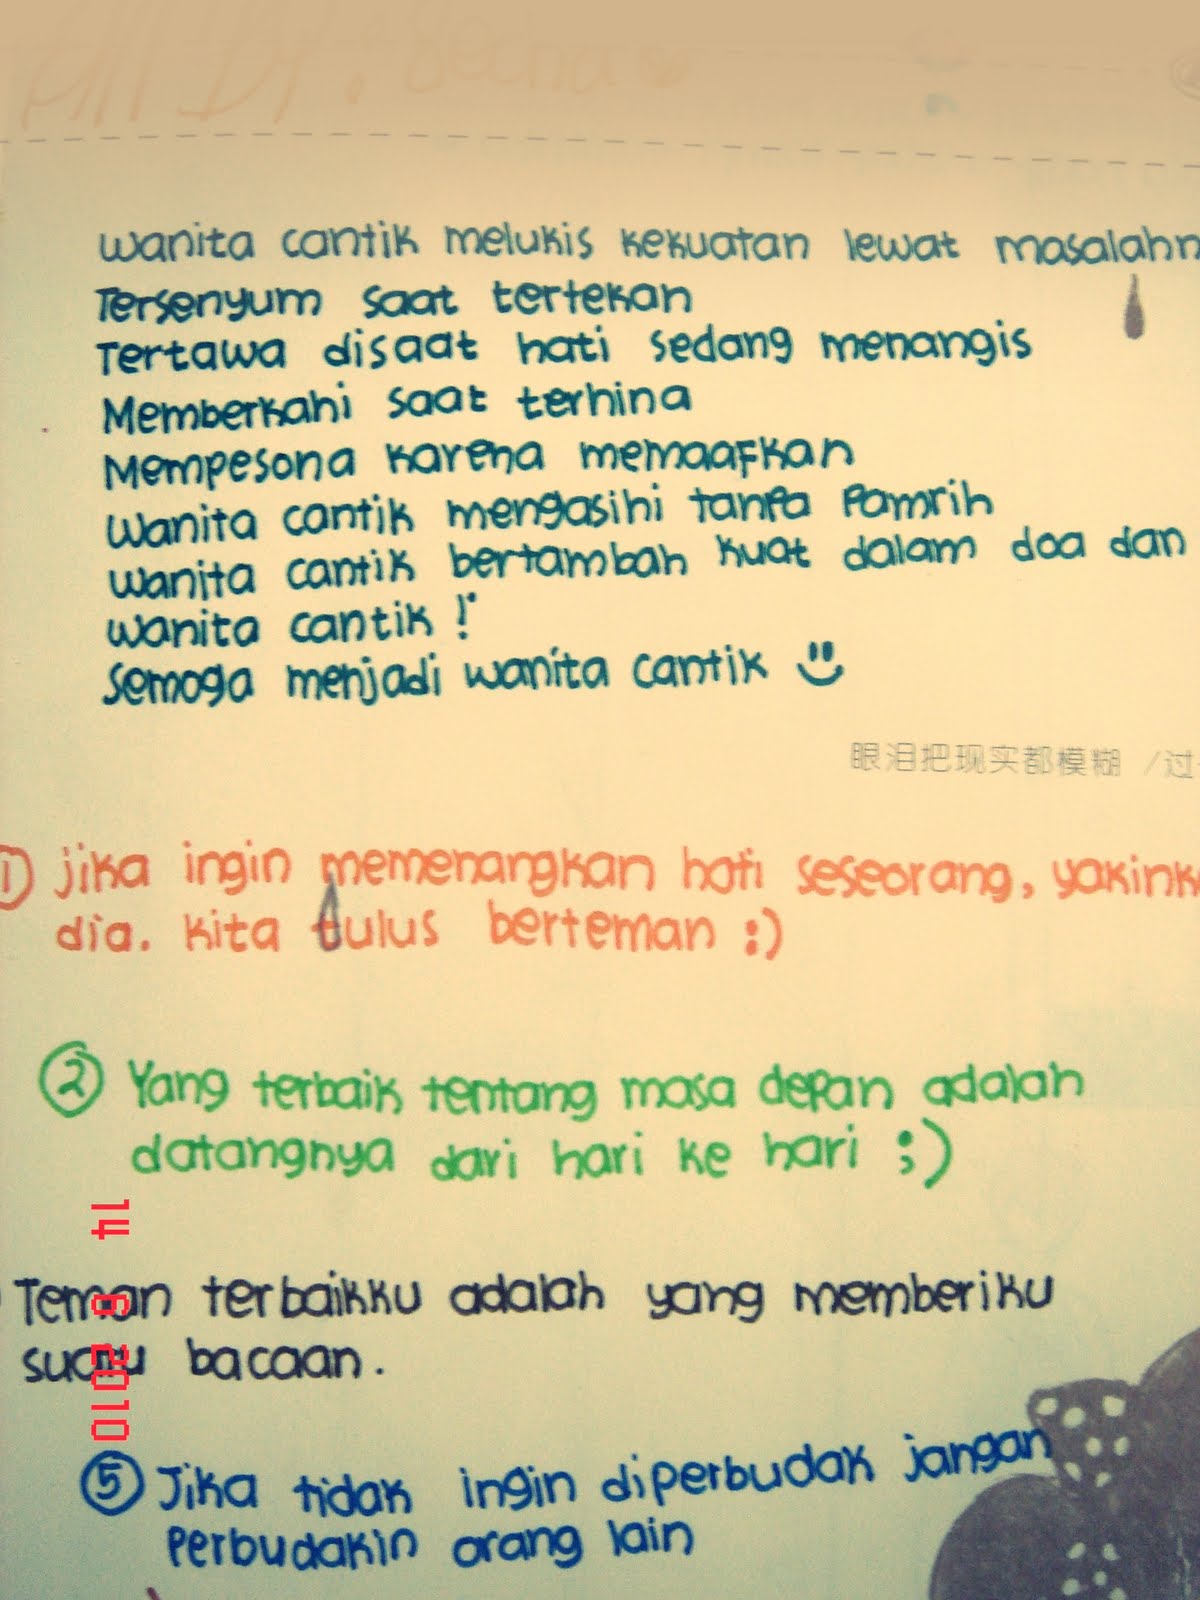 wanita cantik melukis kekuatan lewat masalahn
Tersenyum saat tertekan
Tertawa disaat hati sedang menangis
Memberkahi saat terhina
Mempesona karena memaafkan
wanita cantik mengasihi tanpa pamrih
wanita cantik bertambah kuat dalam doa dan
wanita cantik !
Semoga menjadi wanita cantik
眼泪把现实都模糊 /过
1) jika ingin memenangkan hati seseorang, yakink
dia. kita tulus berteman :)
2 Yang terbaik tentang masa depan adalah
datangnya dari hari ke hari ;)
Teman terbaikku adalah yang memberiku
suatu bacaan.
5 Jika tidak ingin diperbudak jangan
Perbudakin orang lain
14 6 2010